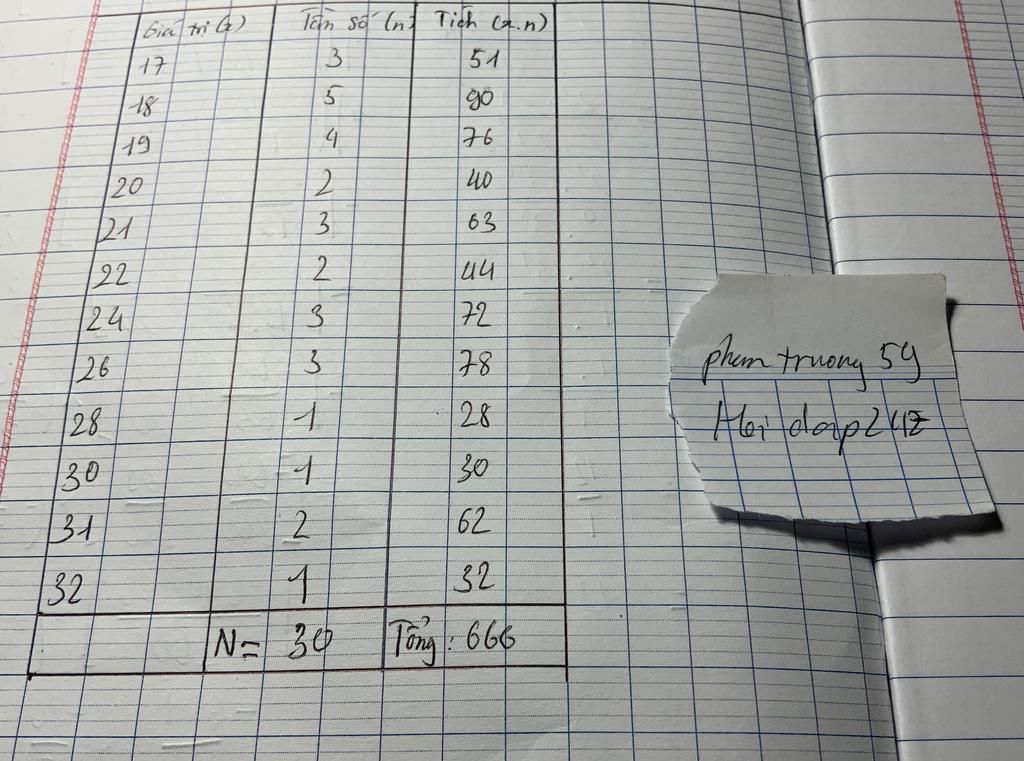 Giá trị (x) Tần số (n) Tích (x.n)
17 3 51
18 5 90
19 4 76
20 2 40
21 3 63
22 2 44
24 3 72
26 3 78
28 1 28
30 1 30
31 2 62
32 1 32
N= 30 Tổng: 666
pham truong 59
Hoi dap 247